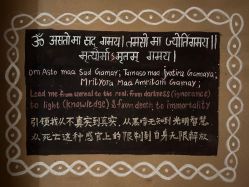 ॐ असतोमा सद् गमय। तमसो मा ज्योतिर्गमय।।
मृत्योर्मा अमृतम् गमय।
Om Asto maa Sud Gamay; Tamaso maa Jyotira Gamaya;
Mrityora Maa Amritam Gamay;
Lead me from unreal to the real, from darkness (ignorance)
to light (knowledge) & from death to immortality
引领我从不真实到真实，从黑暗无知到光明智慧
从死亡这种感官上的限制到自身无限解放